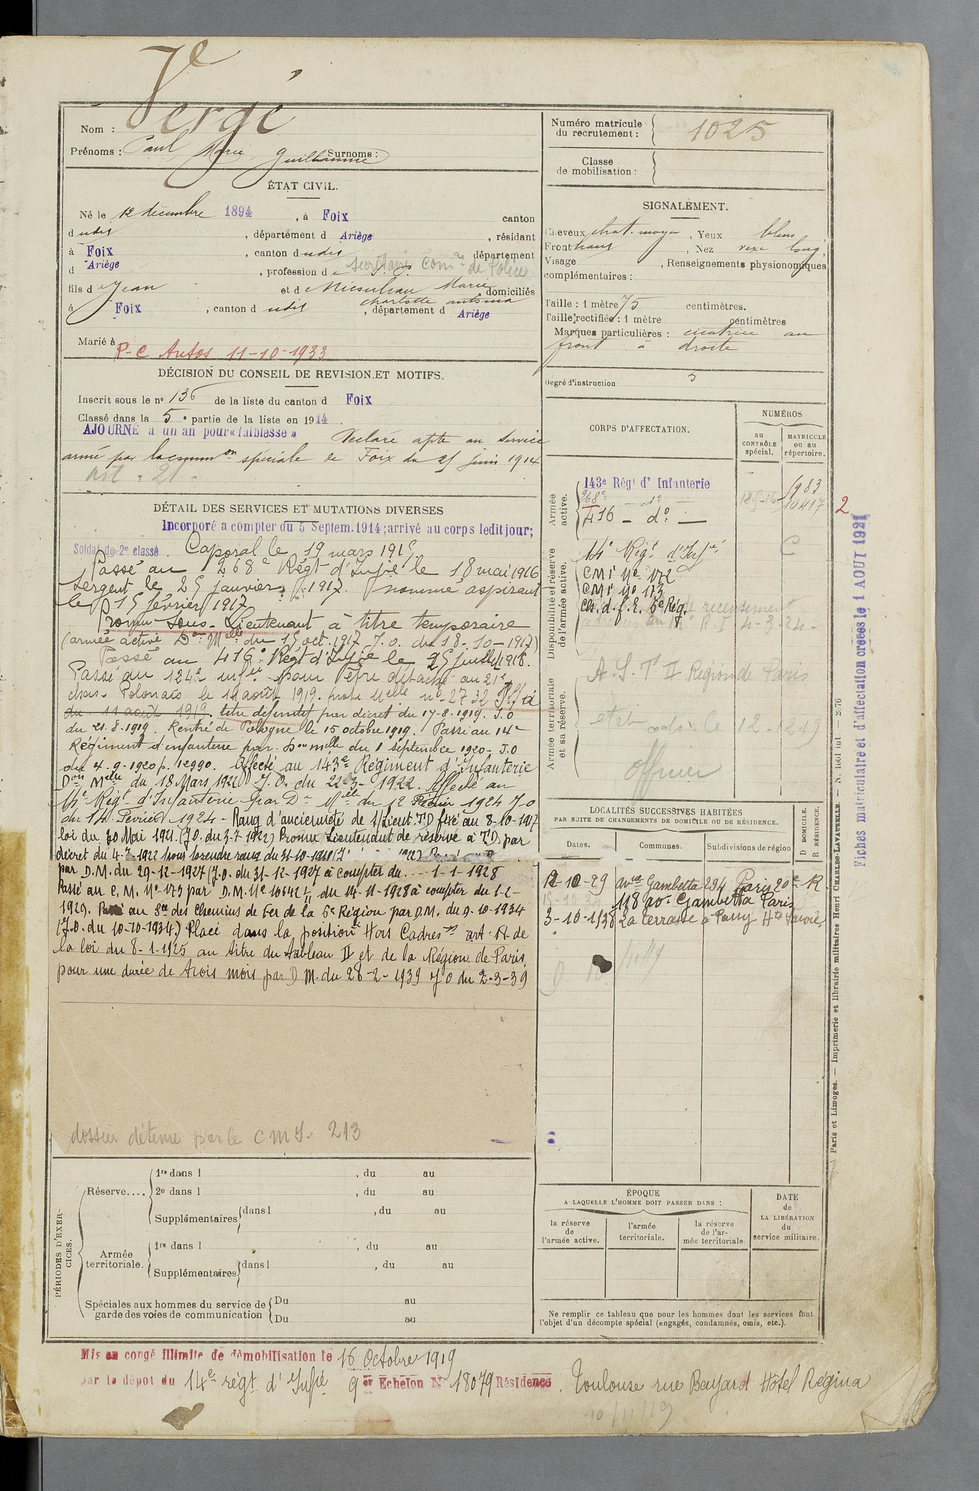 Nom : Vergé
Prénoms : Paul Marie Guillaume Surnoms :
ÉTAT CIVIL.
Né le 12 décembre 1894, à Foix canton
dudit, département d Ariège, résidant
à Foix, canton dudit département
d Ariège, profession de Secrétaire Com.re de Police
fils de Jean et de Marie domiciliés
Charlotte
à Foix, canton dudit, département d Ariège
Marié à
P-C 11-10-1933
DÉCISION DU CONSEIL DE REVISION ET MOTIFS.
Inscrit sous le n° 136 de la liste du canton d Foix
Classé dans la 5e partie de la liste en 1914
AJOURNÉ à un an pour « faiblesse » Déclaré apte au service
armé par la comm on spéciale de Foix du 25 juin 1914
art. 21
DÉTAIL DES SERVICES ET MUTATIONS DIVERSES
Incorporé a compter du 5 Septem. 1914; arrivé au corps ledit jour;
Soldat de 2e classe. Caporal le 19 mars 1915
Passé au 268e Régt d'Infie le 18 mai 1916
Sergent le 25 janvier 1917. nommé aspirant
le 15 février 1917
Promu Sous-Lieutenant à titre temporaire
(armée active Don Melle du 15 oct. 1917 J.O. du 18-10-1917)
Passé au 416e Régt d'Infie le 25 juillet 1918.
Passé au 124e infie pour être détaché au 21e
chas. Polonais le 11 août 1919.
du 11 août 1919. titre définitif par décret du 17-8-1919. J.O
du 21.8.1919 Rentré de Pologne le 15 octobre 1919. Passé au 14e
Régiment d'infanterie par Don melle du 1 septembre 1920- J.O
du 4-9-1920 p. 12990. Affecté au 143e Régiment d'Infanterie
Don Melle du 18 Mars 1922 J.O. du 22-3-1922. Affecté au
14e Régt d'Infanterie par Dn Melle du 12 Février 1924 J.O
du 14 Février 1924 - Rang d'ancienneté de S/Lieut. T.D fixé au 8-10-1917
loi du 30 Mai 1921. (J.O. du 3-7-1922) Promu Lieutenant de réserve à T.D. par
par D.M. du 29-12-1927 (J.O. du 31-12-1927 à compter du 1-1-1928
Passé au C.M. N° 173 par D.M. N° 10342 du 14-11-1928 à compter du 1-2-
1929. Passé au Son des Chemins de Fer de la 5e Région par D.M. du 9-10-1934
(J.O. du 10-10-1934) Placé dans la position Hors Cadres art. A de
la loi du 8-1-1925 au titre du Tableau II et de la Région de Paris
pour une durée de trois mois par D.M. du 28-2-1939 J.O du 2-3-39
dossier détenu par le CMI. 213
PÉRIODES D'EXERCICES.
Réserve.... 1re dans l , du au
2e dans l , du au
Supplémentaires dans l , du au
Armée territoriale. 1re dans l , du au
Supplémentaires dans l , du au
Spéciales aux hommes du service de garde des voies de communication Du au
Du au
Numéro matricule du recrutement : 1025
Classe de mobilisation :
SIGNALEMENT.
Cheveux chat. moyen, Yeux bleus
Front haut, Nez long.
Visage , Renseignements physionomiques
complémentaires :
Taille : 1 mètre 75 centimètres.
Taille rectifiée : 1 mètre centimètres
Marques particulières : cicatrice au
front à droite
Degré d'instruction 3
CORPS D'AFFECTATION.
NUMÉROS
AU CONTRÔLE spécial.
MATRICULE ou au répertoire.
Armée active.
143e Régt d' Infanterie
268e - do -
416 - do -
Disponibilité et réserve de l'armée active.
14e Regt d'Infie
CMI No 172
CMI No 173
Ch. d. f. R. 5e Rég.
Armée territoriale et sa réserve.
A.S. T. II Region de Paris
officier
LOCALITÉS SUCCESSIVES HABITÉES
PAR SUITE DE CHANGEMENTS DE DOMICILE OU DE RÉSIDENCE.
Dates. Communes. Subdivisions de région D DOMICILE. R RÉSIDENCE.
12-10-29 Avue Gambetta 294 Paris 20e R
118 av. Gambetta Paris
3-10-1938 La Terrasse à Passy Hte Savoie
ÉPOQUE
A LAQUELLE L'HOMME DOIT PASSER DANS :
la réserve de l'armée active.
l'armée territoriale.
la réserve de l'armée territoriale
DATE de LA LIBÉRATION du service militaire.
Ne remplir ce tableau que pour les hommes dont les services font
l'objet d'un décompte spécial (engagés, condamnés, omis, etc.).
2
Fiches matriculaire et d'affectation créées le 1 AOUT 1921
Paris et Limoges. — Imprimerie et librairie militaires Henri CHARLES-LAVAUZELLE.
Mis en congé illimité de démobilisation le 16 Octobre 1919
par le dépôt du 14e régt d'Infie 9e Échelon N° 18079 Résidence. Toulouse rue Bayard Hôtel Régina